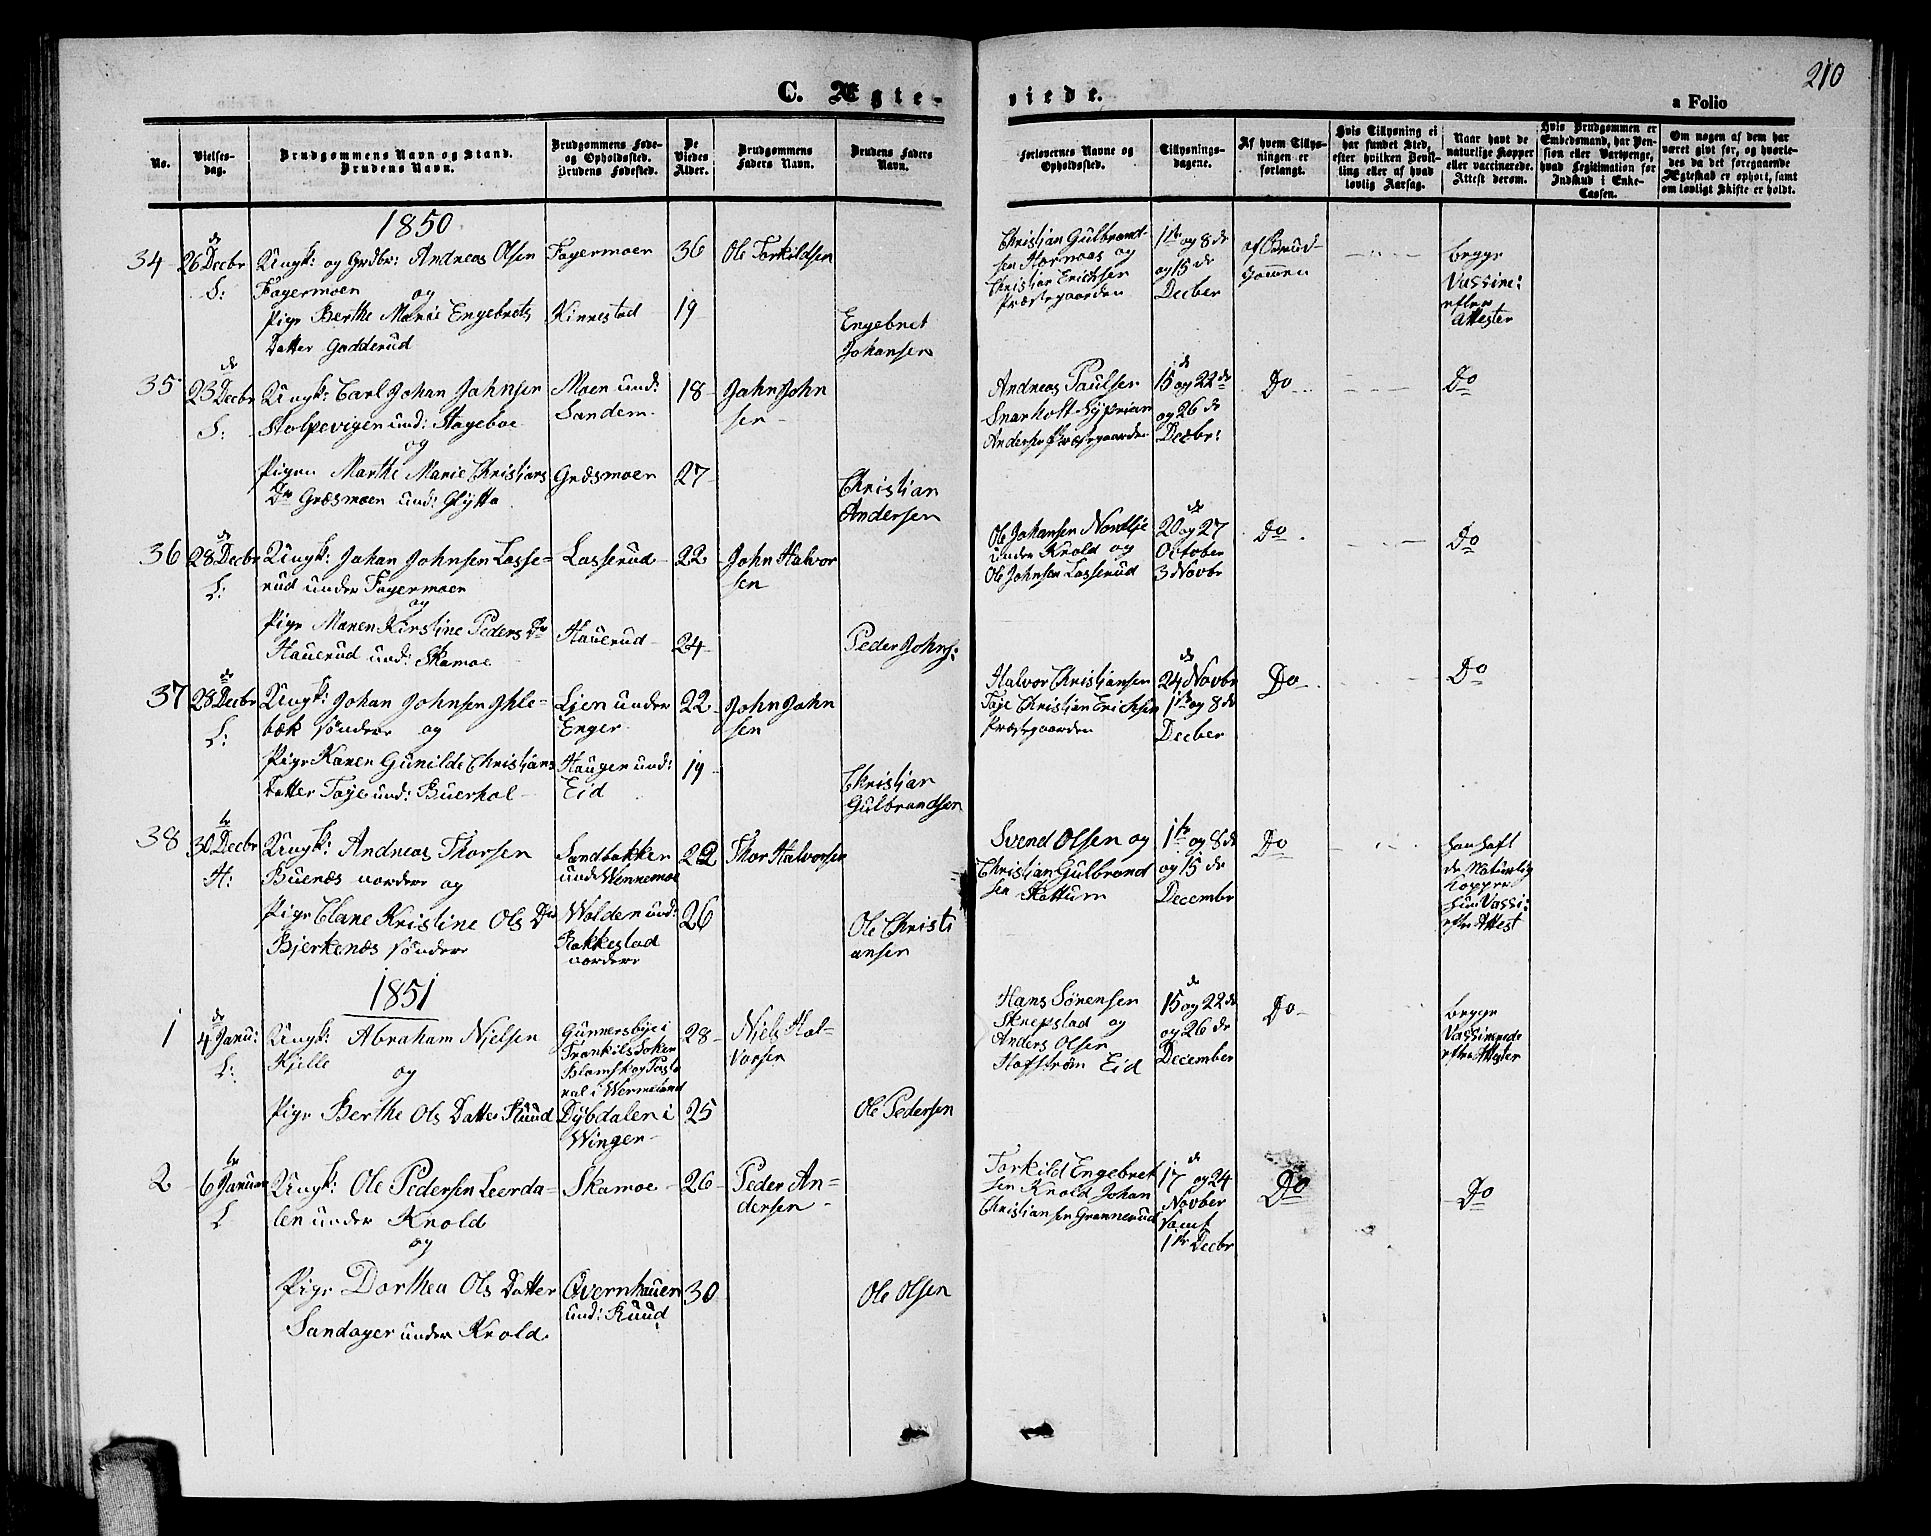 210
C. Ægte-
viede.
a Folio
No.
Vielses-
dag.
Brudgommens Navn og Stand.
Brudens Navn.
Brudgommens Føde-
og Opholdssted.
Brudens Fødested.
De
Viedes
Alder.
Brudgommens
Faders Navn.
Brudens Faders
Navn.
Forlovernes Navne og
Opholdssted.
Tillysnings-
dagene.
Af hvem Tillys-
ningen er
forlangt.
Hvis Tillysning ei
har fundet Sted,
efter hvilken Bevil-
ling eller af hvad
lovlig Aarsag.
Naar havt de
naturlige Kopper
eller vaccinerede.
Attest derom.
Hvis Brudgommen er
Embedsmand, har Pen-
sion eller Vartpenge,
hvad Legitimation for
Indskud i Enke-
Cassen.
Om nogen af dem har
været givt før, og hvorle-
des da det foregaaende
Ægteskab er ophørt, samt
om lovligt Skifte er holdt.
1850
34
26 de Decbr
S:
Ungk: og Grdbr: Andreas Olsen
Fagermoen
og
Pige Berthe Marie Engebrets
Datter Gadderud
Fagermoen
Kinnestad
36
19
Ole Torkildsen
Engebret
Johansen
Christian Gulbrand-
sen Hornæs og
Christian Erichsen
Præstegaarden
1ste og 8de
og 15 de
Decber
af Brud-
gomen
begge
Vassine:
efter
Attester
35
23 de Decbr
S:
Ungk: Carl Johan Johnsen
Stolpevigen und: Hageboe
og
Pigen Marthe Marie Christians
Dr Græsmoen und: Glytta
Moen und:
Sandem
Græsmoen
18
27
John John
sen
Christian
Andersen
Andreas Paulsen
Snarholt Syprian
Andersen Præstegaarden
15 og 22 de
og 26 de
Decbr:
Do
Do
36
28 de Decbr
L:
Ungk: Johan Johnsen Lasse-
rud under Fagermoen
og
Pige Maren Kirstine Peders Dr
Hauerud und: Skamoe
Lasserud
Hauerud
22
24
John Halvor
sen
Peder Johns:
Ole Johansen Nordlie
under Krold og
Ole Johnsen Lasserud
20 de og 27
October
3 Novbr
Do
Do
37
28 de Decbr
L:
Ungk: Johan Johnsen Ihle-
bæk søndere og
Pige Karen Gunilde Christians
Datter Taje und: Buerhol
Lien under
Enger
Haugen und:
Eid
22
19
John John
sen
Christian
Gulbrandsen
Halvor Christiansen
Taje Christian Erichsen
Præstegaarden
24 de Novbr
1ste og 8 de
Decber
Do
Do
38
30 te Decbr
H:
Ungk: Andreas Thorsen
Buenæs nordere og
Pige Elane Kristine Ols Dr
Bjerkenæs søndere
Sandbakken
unde Wennemoe
Wolden und:
Rakkestad
nordere
22
26
Thor Halvorsen
Ole Christi
ansen
Svend Olsen og
Christian Gulbrand
sen Kattum
1ste og 8 de
og 15 de
December
Do
han haft
de Naturlig
Kopper
hun Vassi:
efter Attest
1851
1
4 de Janu:
L:
Ungk: Abraham Nielsen
Kjille
og
Pige Berthe Ols Datter Ruud
Gunnersbye i
Frankils Soken
Blomskog Pasto
rat i Wermeland
Dybdalen i
Winger
28
25
Niels Hal-
vorsen
Ole Pedersen
Hans Sørensen
Skrepstad og
Anders Olsen
Hofstrøm Eid
15 de og 22 de
og 26 de
December
Do
begge
Vassinerede
efter Attester
2
6 te Januar
L
Ungk: Ole Pedersen Leerda-
len under Krold
og
Pige Dorthea Ols Datter
Sandager under Krold
Skamoe
Overnhauen
und: Ruud
26
30
Peder An-
dersen
Ole Olsen
Torkild Engebret
sen Krold Johan
Christiansen Grønnerud
17 de og 24
Novber
samt
1ste Decbr
Do
Do